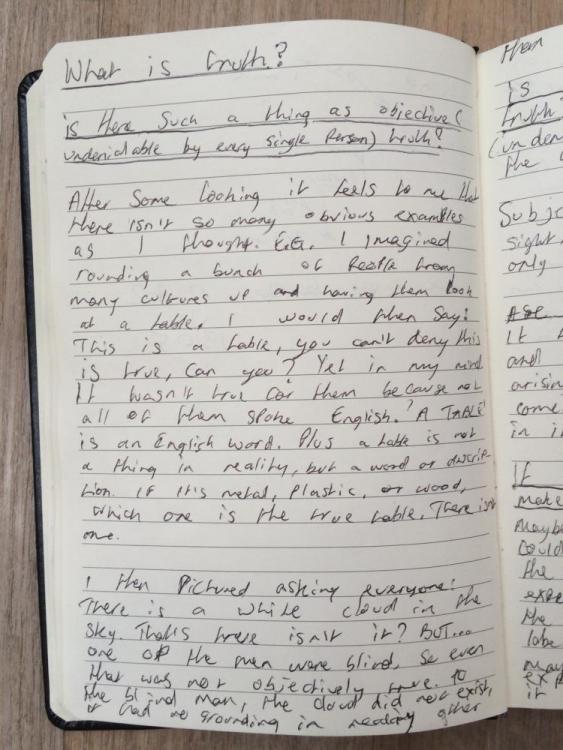 What is truth?
is there such a thing as objective (
undeniable by every single person) truth?
After some looking it feels to me that
there isn't so many obvious examples
as I thought. E.G. I imagined
rounding a bunch of people from
many cultures up and having them look
at a table. I would then say:
This is a table, you can't deny this
is true, can you? Yet in my mind
it wasn't true for them because not
all of them spoke English. 'A TABLE'
is an English word. Plus a table is not
a thing in reality, but a word or descrip-
tion. If it's metal, plastic, or wood,
which one is the true table. There isn't
one.
I then pictured asking everyone:
There is a white cloud in the
sky. That's true isn't it? BUT...
one of the men were blind, so even
that was not objectively true. To
the blind man, the cloud did not exist,
it had no grounding in reality other
them
is
truth
(unden
the
Subjec
sight
only
It
and
arisin
come
in i
It
make
maybe
could
the
expe
the
labe
may
exp
it